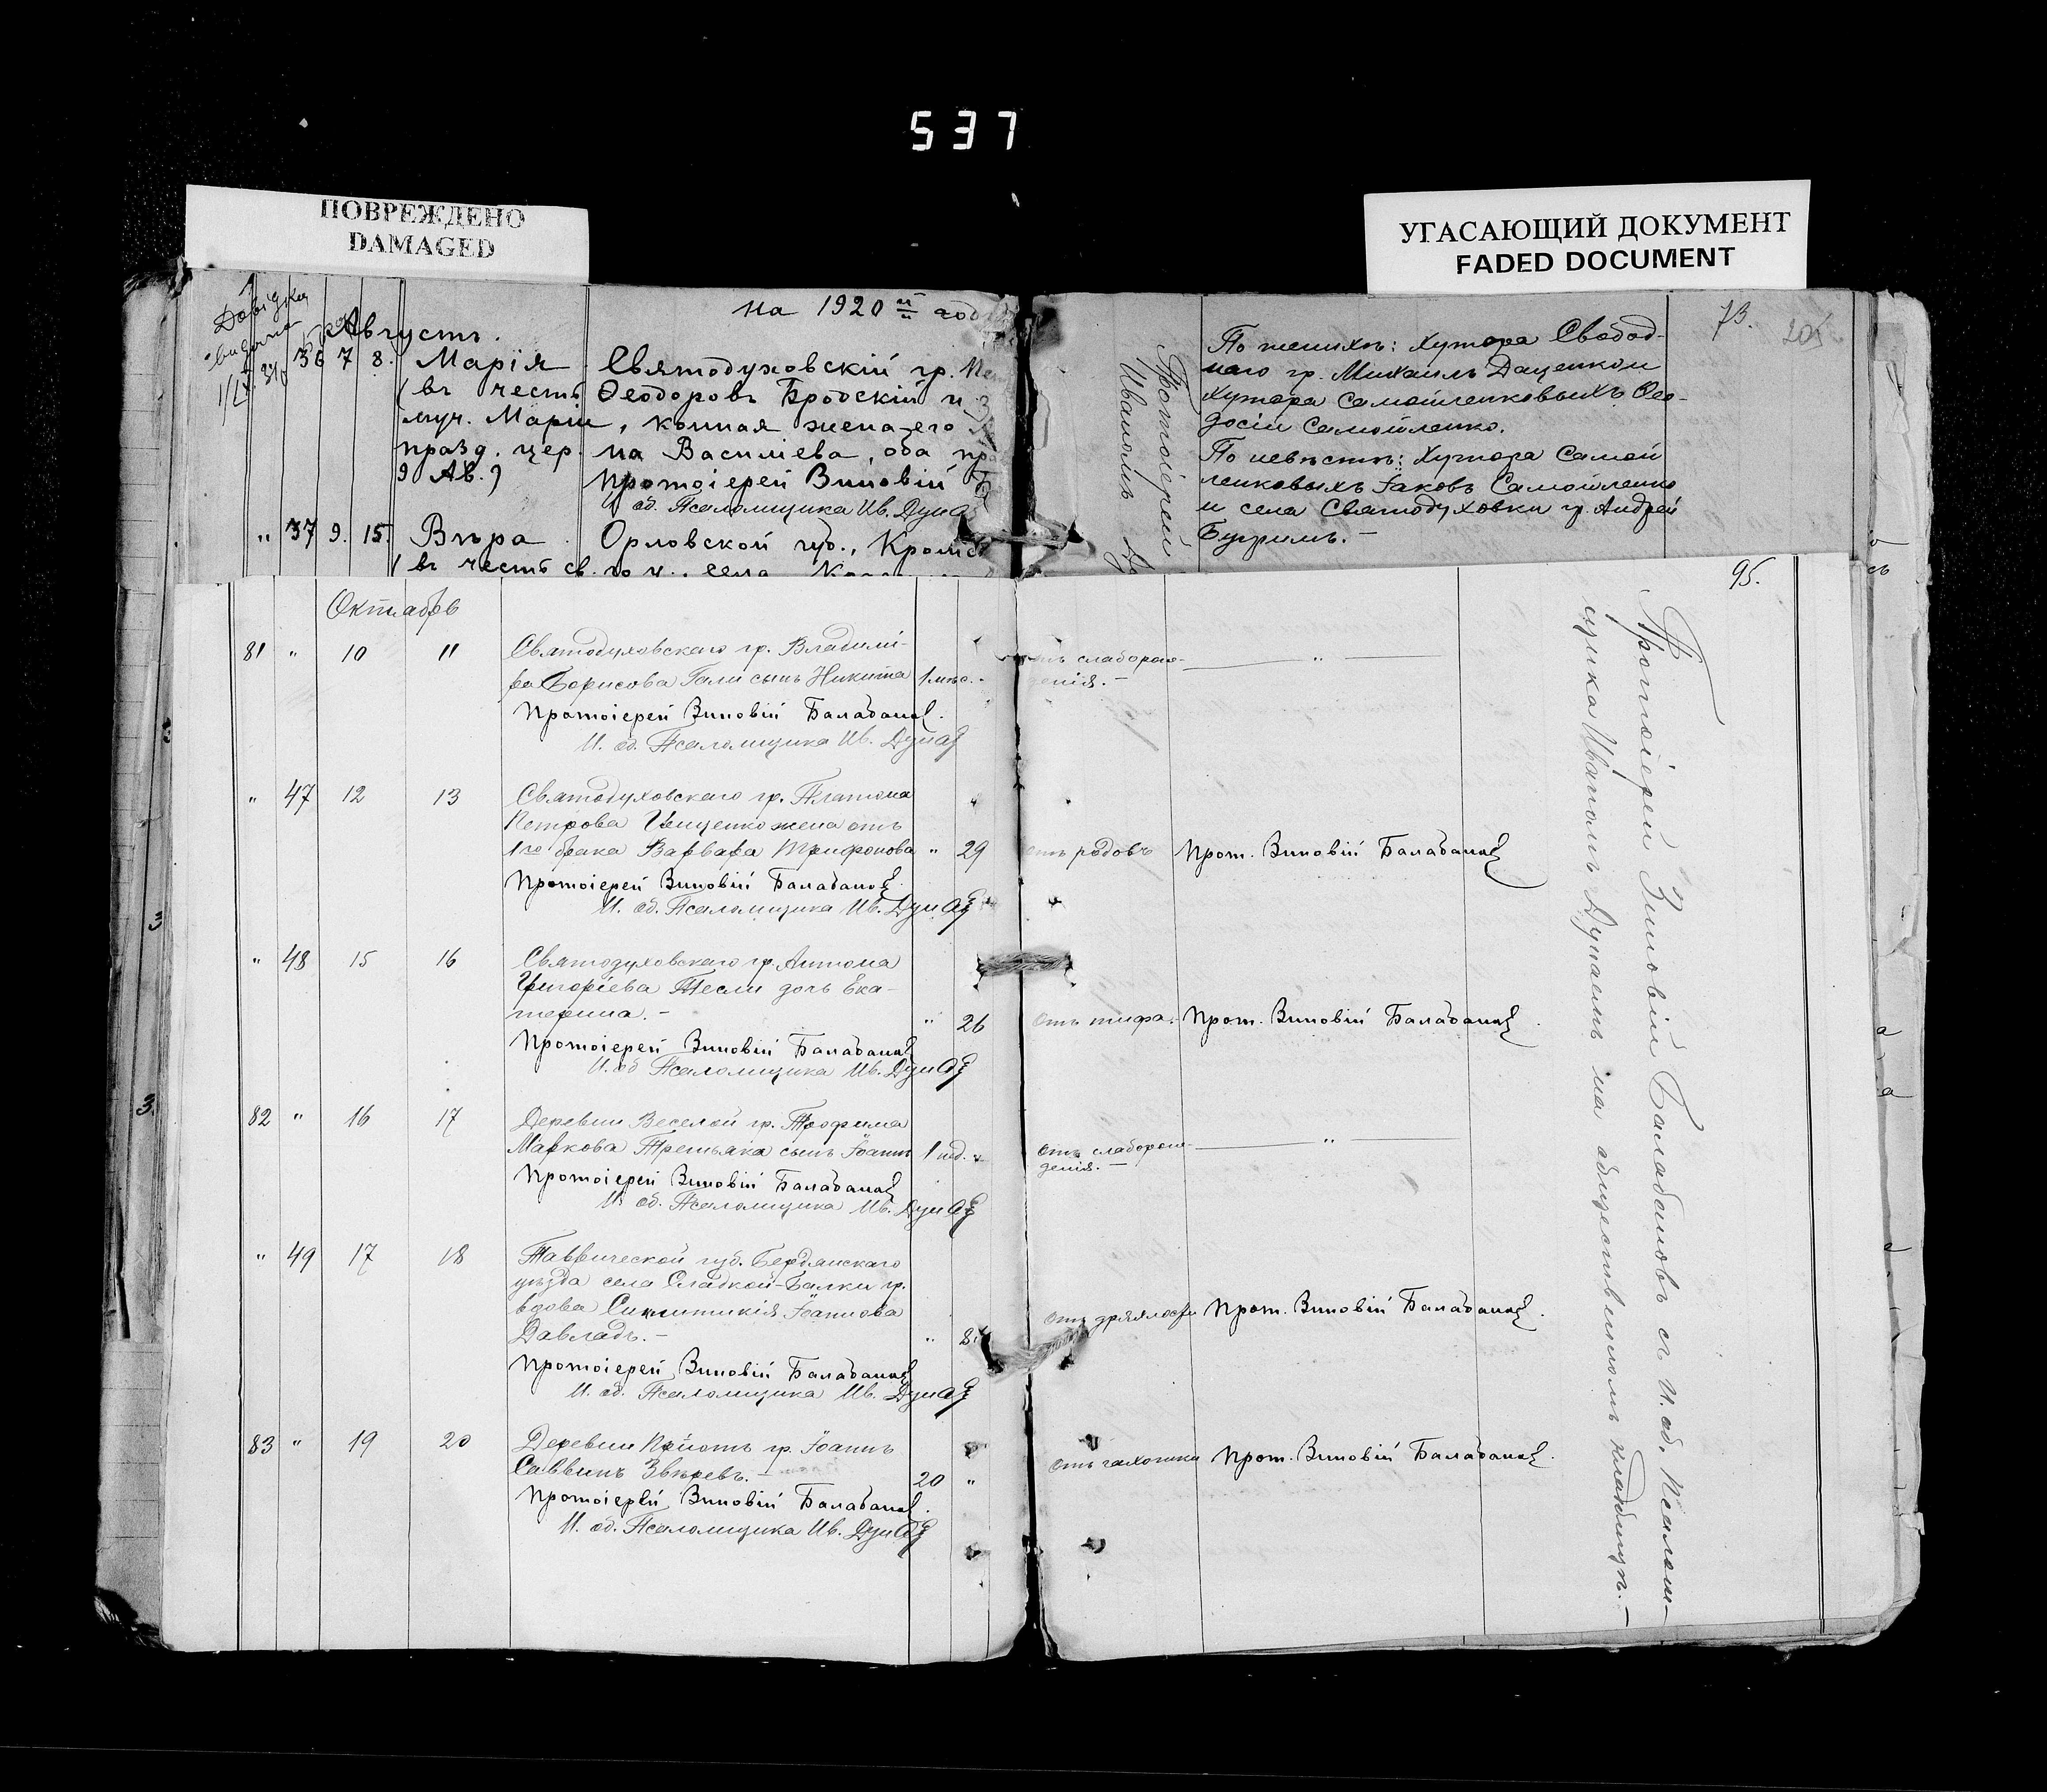 537
ПОВРЕЖДЕНО
DAMAGED
УГАСАЮЩИЙ ДОКУМЕНТ
FADED DOCUMENT
на 1920 й год
Августъ.
36 7 8. Марія Святодуховскій гр.
(въ честь Ѳеодоровъ Бродскій и
муч. Маріи, конная жена его
празд. цер. на Василіева, оба пр
9 Ав.) Протоіерей Зиновій
И. об. Псаломщика Ив. Дуна
„ 37 9. 15. Вѣра Орловской губ., Кромс
(въ честь св.
73.
205
По женихѣ: хутора Свобод-
наго гр. Михаилъ Даценко и
хутора Самойленковыхъ Ѳео-
досій Самойленко.
По невѣстѣ: хутора Самой
ленковыхъ Іаковъ Самойленко
и села Святодуховки гр. Андрей
Бугримъ. —
Протоіерей
Иваномъ
95.
Октябрь
81 „ 10 11 Святодуховскаго гр. Владимі-
ра Борисова Гали сынъ Никита 1 мѣс. „ слаборож- „
денія. —
Протоіерей Зиновій Балабановъ.
И. об. Псаломщика Ив. Дунаев
„ 47 12 13 Святодуховскаго гр. Платона
Петрова Ищенко жена отъ
1го брака Варвара Трифонова „ 29 отъ родовъ Прот. Зиновій Балабановъ
Протоіерей Зиновій Балабановъ.
И. об. Псаломщика Ив. Дунаев
„ 48 15 16 Святодуховскаго гр. Антона
Григоріева Тесли дочь Ека-
терина. — „ 26 отъ тифа. Прот. Зиновій Балабановъ.
Протоіерей Зиновій Балабановъ
И. об. Псаломщика Ив. Дунаев
82 „ 16 17 Деревни Веселой гр. Трофима
Маркова Третьяка сынъ Іоаннъ 1 нед. „ отъ слаборож- „
денія. —
Протоіерей Зиновій Балабановъ
И. об. Псаломщика Ив. Дунаев
„ 49 17 18 Таврической губ. Бердянскаго
уѣзда села Сладкой-Балки гр.
вдова Синклитикія Іоаннова
Давладъ. — „ 8 отъ дряхлости Прот. Зиновій Балабановъ.
Протоіерей Зиновій Балабановъ
И. об. Псаломщика Ив. Дунаев
83 „ 19 20 Деревни Пріютъ гр. Іоаннъ
Саввинъ Звѣревъ. — 20 „ отъ чахотки Прот. Зиновій Балабановъ.
Протоіерей Зиновій Балабановъ.
И. об. Псаломщика Ив. Дунаев
Протоіерей Зиновій Балабановъ съ И. об. Псалом-
щика Иваномъ Дунаемъ на общественномъ кладбищѣ. —